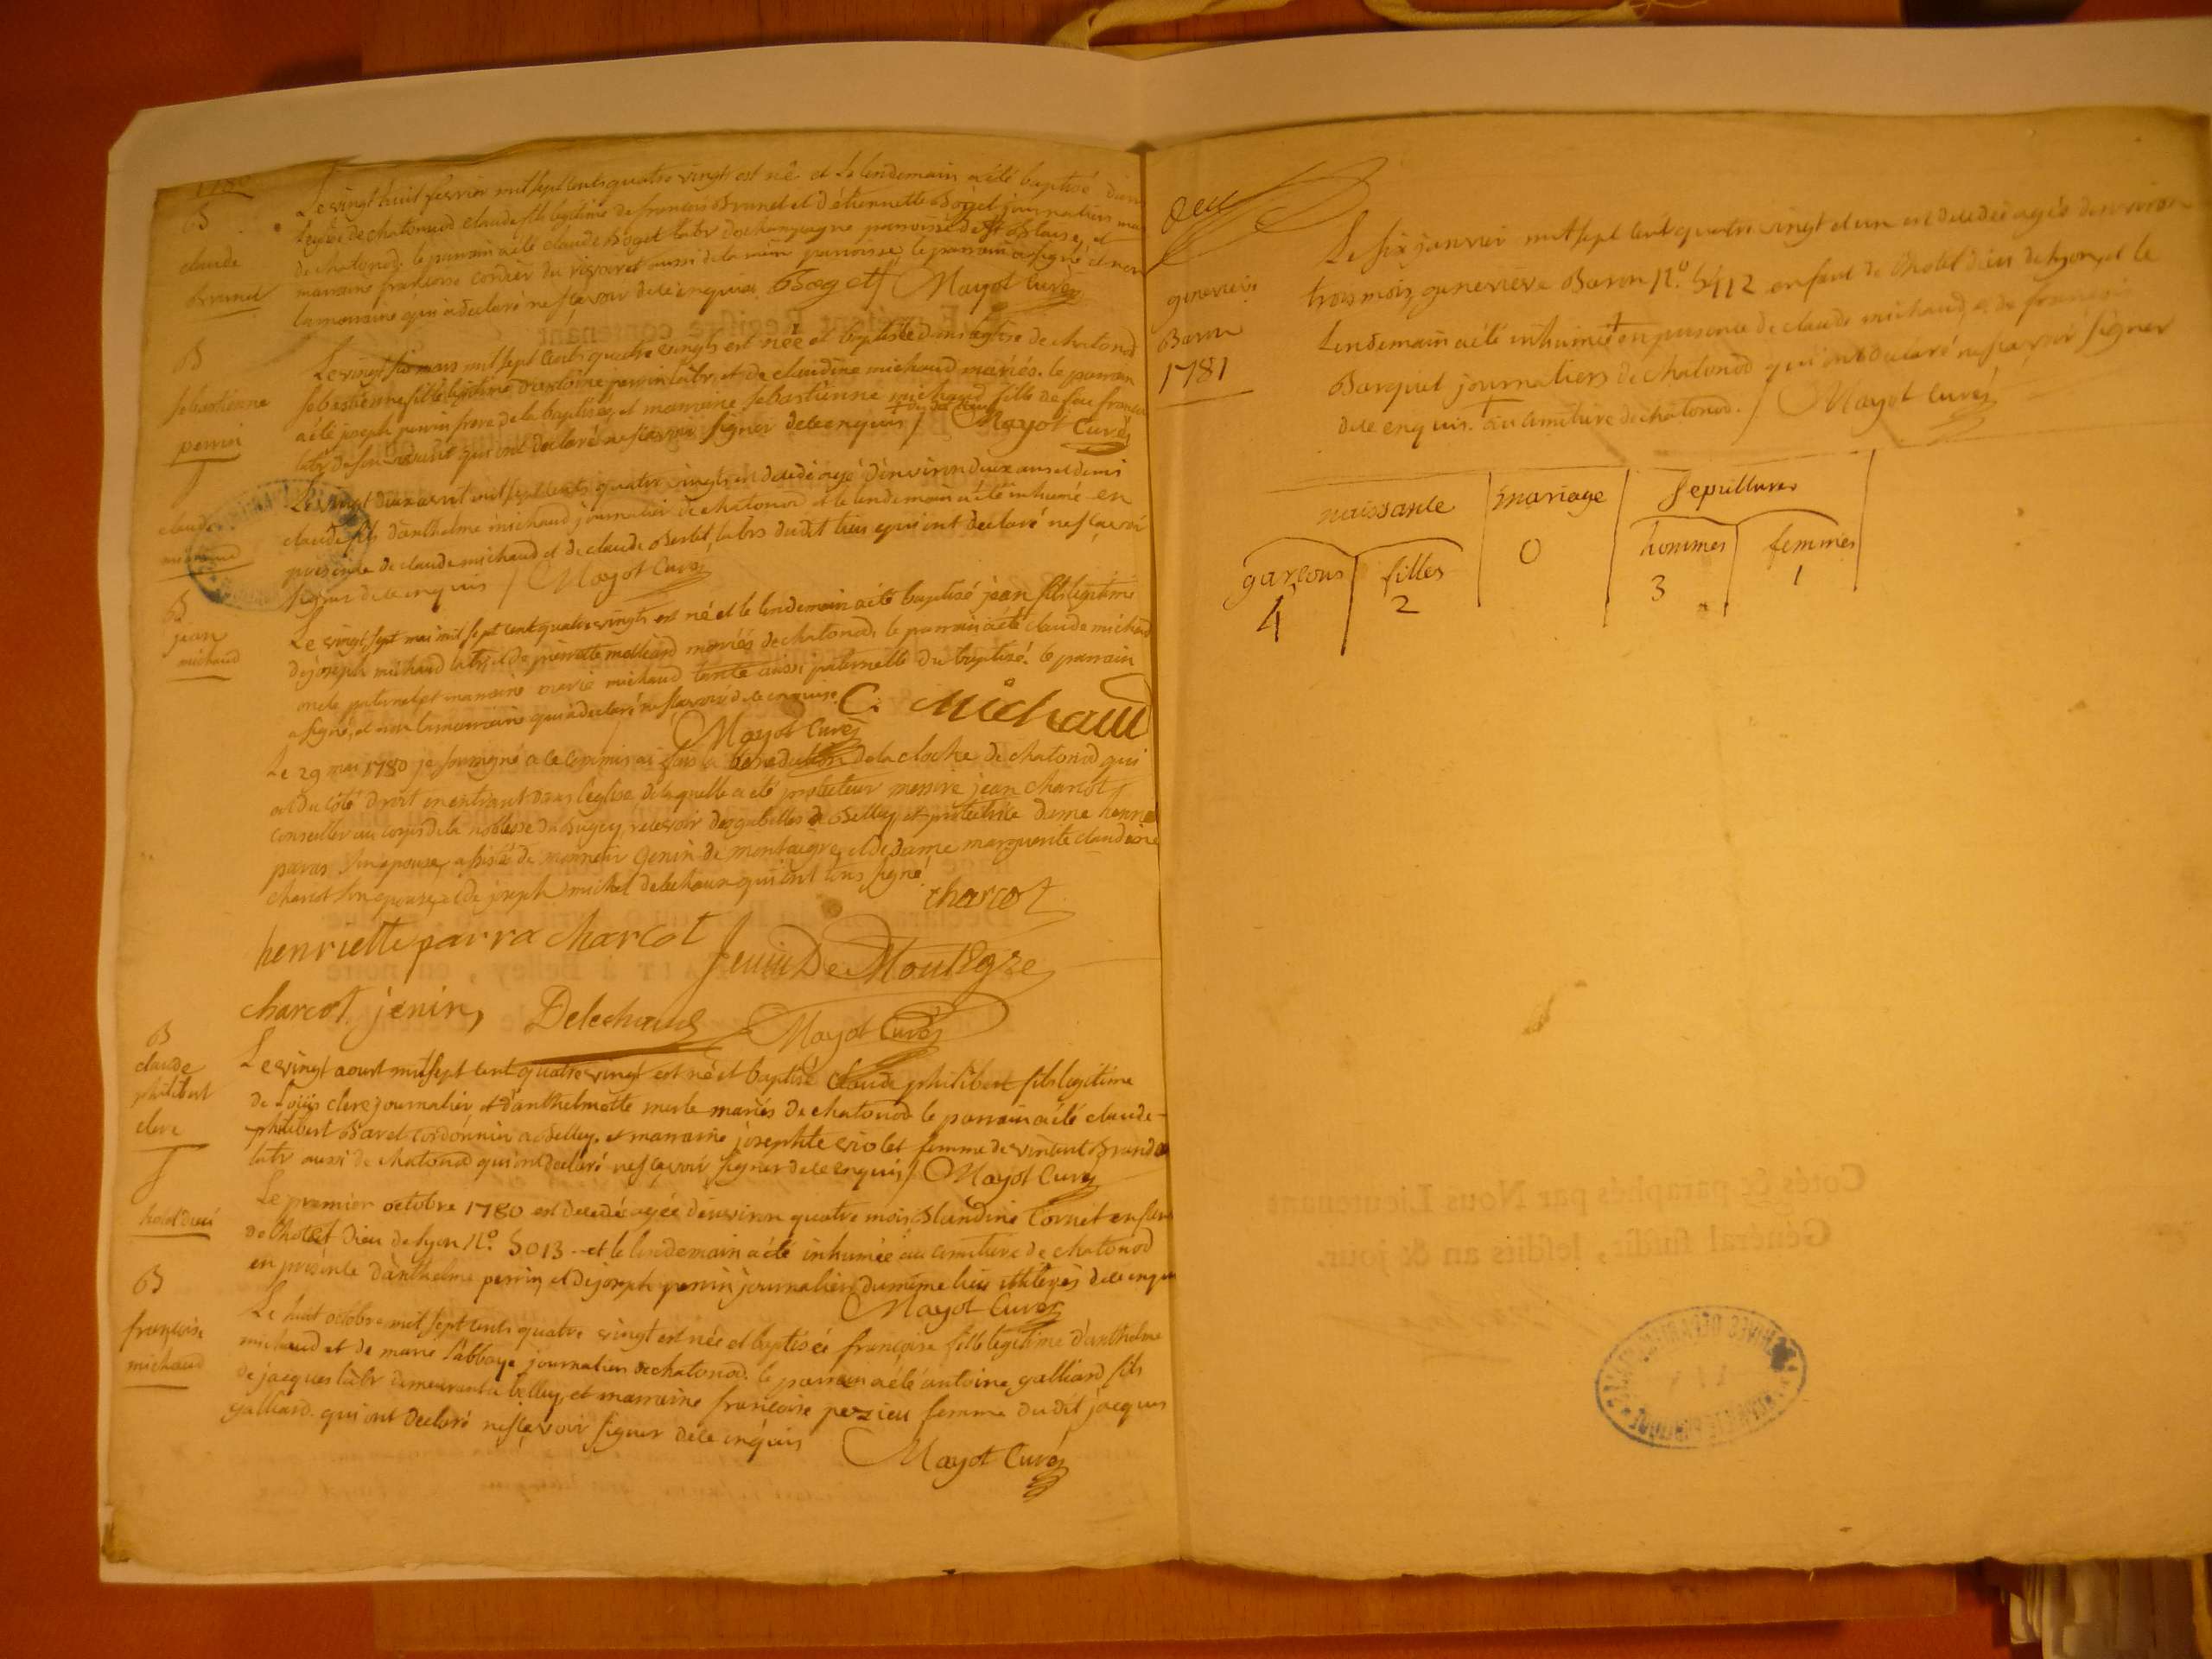 1780
B
claude
brunet
Le vingt huit fevrier mil sept cents quatre vingts est né et le lendemain a été baptisé dans
leglise de chatonod claude fils legitime de francois Brunet et d'etiennette Boget journaliers
de chatonod. le parrain a été claude Boget labr de champagne parroisse de St Blaise, et
marraine francoise cordier du meme parroisse, le parrain a signé et non
la marraine qui a declaré ne sçavoir de ce enquise. Boget / Mayot Curé
B
sebastienne
perrin
Le vingt six mars mil sept cents quatre vingts est née et baptisée dans leglise de chatonod
sebastienne fille legitime d'antoine perrin labr, et de claudine michaud mariés. le parrain
a été joseph perrin frere de la baptisée, et marraine sebastienne michaud fille de feu francois
labr qui ont declaré ne sçavoir signer de ce enquis / Mayot Curé
S
claude
michaud
Le vingt deux avril mil sept cents quatre vingts est decedé agé d'environ deux ans et demi
claude fils d'anthelme michaud journalier de chatonod et le lendemain a été inhumé en
presence de claude michaud et de claude Berlet, labrs dudit lieu qui ont declaré ne sçavoir
signer de ce enquis / Mayot Curé
B
jean
michaud
Le vingt sept mai mil sept cent quatre vingts est né et le lendemain a été baptisé jean fils legitime
de joseph michaud labr, et de pierrette molleard mariés de chatonod, le parrain a été claude michaud
oncle paternel, et marraine marie michaud tante aussi paternelle du baptisé. le parrain
a signé, et non la marraine qui a declaré ne sçavoir de ce enquise. C. Michaud
Mayot Curé
Le 29 mai 1780 je soussigné a ce commis ai fait la benediction de la cloche de chatonod qui
est du côté droit en entrant dans leglise, de laquelle a été protecteur messire jean charcot
conseiller au corps de la noblesse du Bugey, receveur des gabelles de Belley, et protectrice dame henriette
paras son epouse, assisté de monsieur Genin de montaigre, et de dame marguerite claudine
charcot son epouse, et de joseph michel delechaux qui ont tous signé.
charcot
henriette parra charcot Jenin De Montegre
charcot jenin, Delechaux Mayot Curé
B
claude
philibert
clerc
Le vingt aoust mil sept cent quatre vingt est né et baptisé claude philibert fils legitime
de Loüis clerc journalier, et d'anthelmette merle mariés de chatonod le parrain a été claude-
philibert Bavet cordonnier a Belley, et marraine josephte violet femme de vincent Brunet
labr aussi de chatonod qui ont declaré ne sçavoir signer de ce enquis / Mayot Curé
S
hotel dieu
Le premier octobre 1780 est decedé agée d'environ quatre mois Blandine Cornet enfant
de l'hotel Dieu de lyon N.o 5013 - et le lendemain a été inhumée au cimetiere de chatonod
en presence d'anthelme perrin, et de joseph perrin journaliers du même lieu illiterés de ce enquis
Mayot Curé
B
françoise
michaud
Le huit octobre mil sept cents quatre vingt est née et baptisée françoise fille legitime d'anthelme
michaud et de marie Labbaye journaliers de chatonod. le parrain a été antoine galliard fils
de jacques labr demeurant a belley, et marraine françoise pezieu femme du dit jacques
galliard. qui ont declaré ne sçavoir signer de ce enquis Mayot Curé
genevieve
Baron
1781
Le six janvier mil sept cent quatre vingt et un est decedée agée d'environ
trois mois genevieve Baron N.o 5412 enfant de l'hotel dieu de lyon, et le
Lendemain a été inhumée + en presence de claude michaud, et de francois
Barquet journaliers de chatonod qui ont declaré ne sçavoir signer
de ce enquis. + au cimetiere de chatonod. / Mayot Curé
naissance mariage sepultures
garçons filles 0 hommes femmes
4 2 3 1
Cotés & paraphés par Nous Lieutenant
Général susdit, lesdits an & jour.